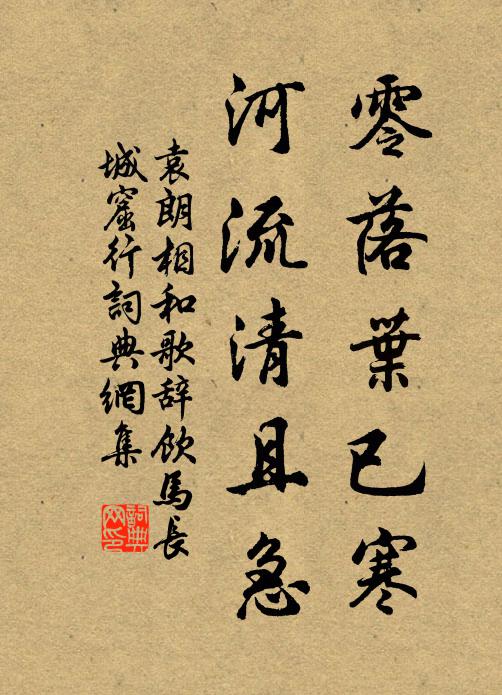 零落葉已寒
河流清且急
袁朗相和歌辞飲馬長
城窟行詞典網集
詞典
网印